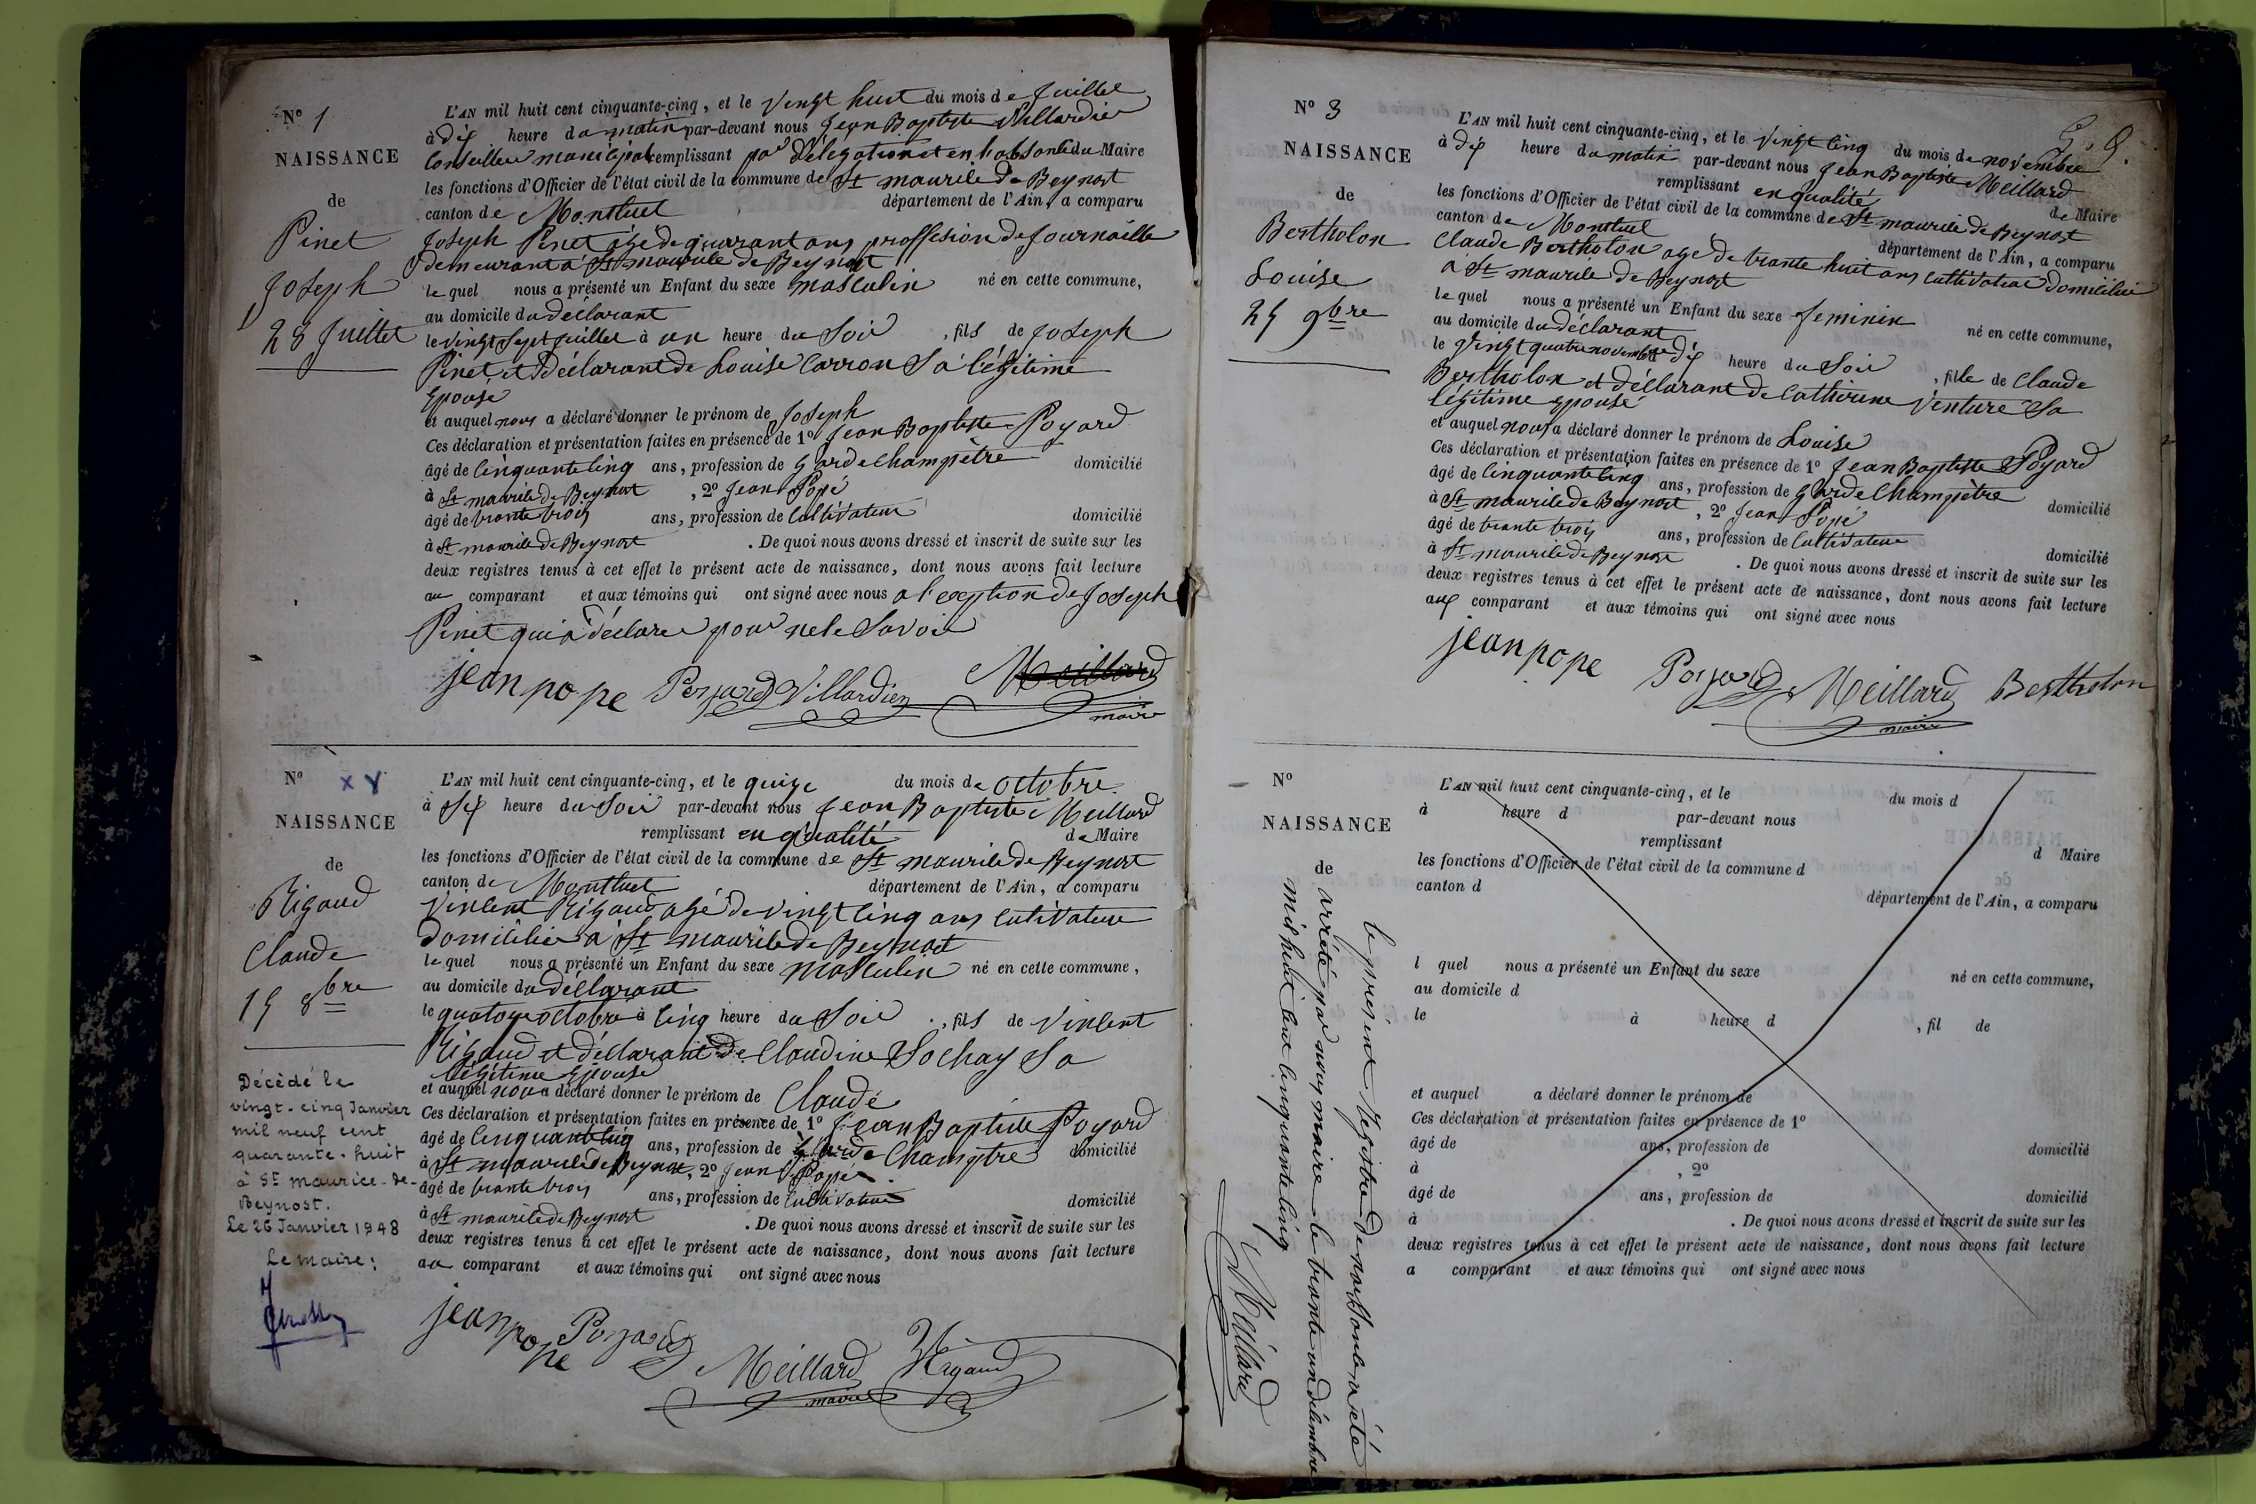 N° 1
NAISSANCE
de
Pinet
Joseph
28 Juillet
L'AN mil huit cent cinquante-cinq, et le vingt huit du mois de Juillet
à dix heure du matin par-devant nous Jean Baptiste Villardier
Conseiller municipal remplissant par délégation et en l'absence du Maire
les fonctions d'Officier de l'état civil de la commune de St maurice de Beynost
canton de Montluel département de l'Ain, a comparu
Joseph Pinet âgé de quarant ans proffesion de Journaille
demeurant à St maurice de Beynost
le quel nous a présenté un Enfant du sexe masculin né en cette commune,
au domicile du déclarant
le vingt Sept Juillet à un heure du Soir, fils de Joseph
Pinet et déclarant de Louise Carron Sa légitime
Epouse
et auquel nous a déclaré donner le prénom de Joseph
Ces déclaration et présentation faites en présence de 1° Jean Baptiste Poyard
âgé de Cinquante Cinq ans, profession de garde Champètre domicilié
à St maurice de Beynost, 2° Jean Popé
âgé de trante trois ans, profession de Cultivateur domicilié
à St maurice de Beynost. De quoi nous avons dressé et inscrit de suite sur les
deux registres tenus à cet effet le présent acte de naissance, dont nous avons fait lecture
au comparant et aux témoins qui ont signé avec nous a l'exeption de Joseph
Pinet qui a déclare pour ne le Savoir
jean pope Poyard Villardier Meillard
maire
N° X V
NAISSANCE
de
Rigaud
Claude
15 8bre
Décédé le
vingt-cinq Janvier
mil neuf cent
quarante-huit
à St Maurice-de-
Beynost.
Le 26 Janvier 1948
Le maire:
L'AN mil huit cent cinquante-cinq, et le quize du mois de octobre
à Six heure du Soir par-devant nous Jean Baptiste Meillard
remplissant en qualité de Maire
les fonctions d'Officier de l'état civil de la commune de St maurice de Beynost
canton de Montluel département de l'Ain, a comparu
Vincent Rigaud agé de vingt Cinq ans Cultivateur
domicilié a St maurice de Beynost
le quel nous a présenté un Enfant du sexe masculin né en cette commune,
au domicile du déclarant
le quatorze octobre à Cinq heure du Soir, fils de Vincent
Rigaud et déclarant de Claudine Sochay Sa
légitime Epouse
et auquel nous a déclaré donner le prénom de Claude
Ces déclaration et présentation faites en présence de 1° Jean Baptiste Poyard
âgé de Cinquante Cinq ans, profession de garde Champtre domicilié
à St maurice de Beynost, 2° Jean Popé
âgé de trante trois ans, profession de Cultivateur domicilié
à St maurice de Beynost. De quoi nous avons dressé et inscrit de suite sur les
deux registres tenus à cet effet le présent acte de naissance, dont nous avons fait lecture
au comparant et aux témoins qui ont signé avec nous
jean pope Poyard Meillard Rigaud
maire
N° 3
NAISSANCE
de
Bertholon
Louise
25 9bre
L'AN mil huit cent cinquante-cinq, et le vingt Cinq du mois de novembre
à dix heure du matin par-devant nous Jean Baptiste Meillard
remplissant en qualité de Maire
les fonctions d'Officier de l'état civil de la commune de St maurice de Beynost
canton de Montluel département de l'Ain, a comparu
Claude Bertholon agé de trante huit ans Cultivateur domicilié
a St maurice de Beynost
le quel nous a présenté un Enfant du sexe feminin né en cette commune,
au domicile du déclarant
le vingt quatre novembre à dix heure du Soir, fille de Claude
Bertholon et déclarant de Catherine Venture Sa
légitime Epouse
et auquel nous a déclaré donner le prénom de Louise
Ces déclaration et présentation faites en présence de 1° Jean Baptiste Poyard
âgé de Cinquante Cinq ans, profession de garde Champètre domicilié
à St maurice de Beynost, 2° Jean Popé
âgé de trante trois ans, profession de Cultivateur domicilié
à St maurice de Beynost. De quoi nous avons dressé et inscrit de suite sur les
deux registres tenus à cet effet le présent acte de naissance, dont nous avons fait lecture
aux comparant et aux témoins qui ont signé avec nous
jean pope Poyard Meillard Bertholon
maire
N°
NAISSANCE
de
le présent Registre de naissance a été
arrêté par nous maire le trante un décembre
mil huit cent cinquante cinq
Meillard
L'AN mil huit cent cinquante-cinq, et le du mois d
à heure d par-devant nous
remplissant d Maire
les fonctions d'Officier de l'état civil de la commune d
canton d département de l'Ain, a comparu
l quel nous a présenté un Enfant du sexe né en cette commune,
au domicile d
le à heure d, fil de
et auquel a déclaré donner le prénom de
Ces déclaration et présentation faites en présence de 1°
âgé de ans, profession de domicilié
à, 2°
âgé de ans, profession de domicilié
à. De quoi nous avons dressé et inscrit de suite sur les
deux registres tenus à cet effet le présent acte de naissance, dont nous avons fait lecture
a comparant et aux témoins qui ont signé avec nous